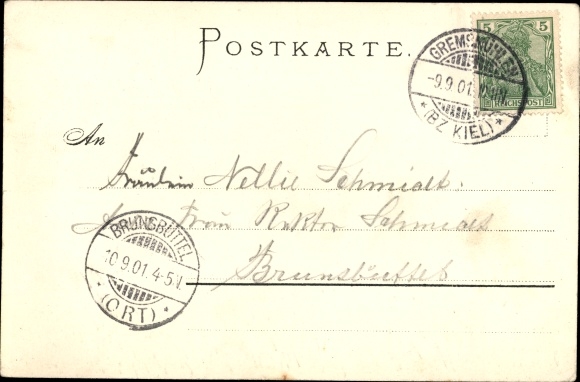 POSTKARTE.
5 5
REICHSPOST
GREMSMÜHLEN
-9.9.01.
* (BZ KIEL) *
An
Fräulein Nellie Schmidt.
Frau Rektor Schmidt
Brunsbüttel
BRUNSBÜTTEL
10.9.01.4-5V.
* (ORT) *